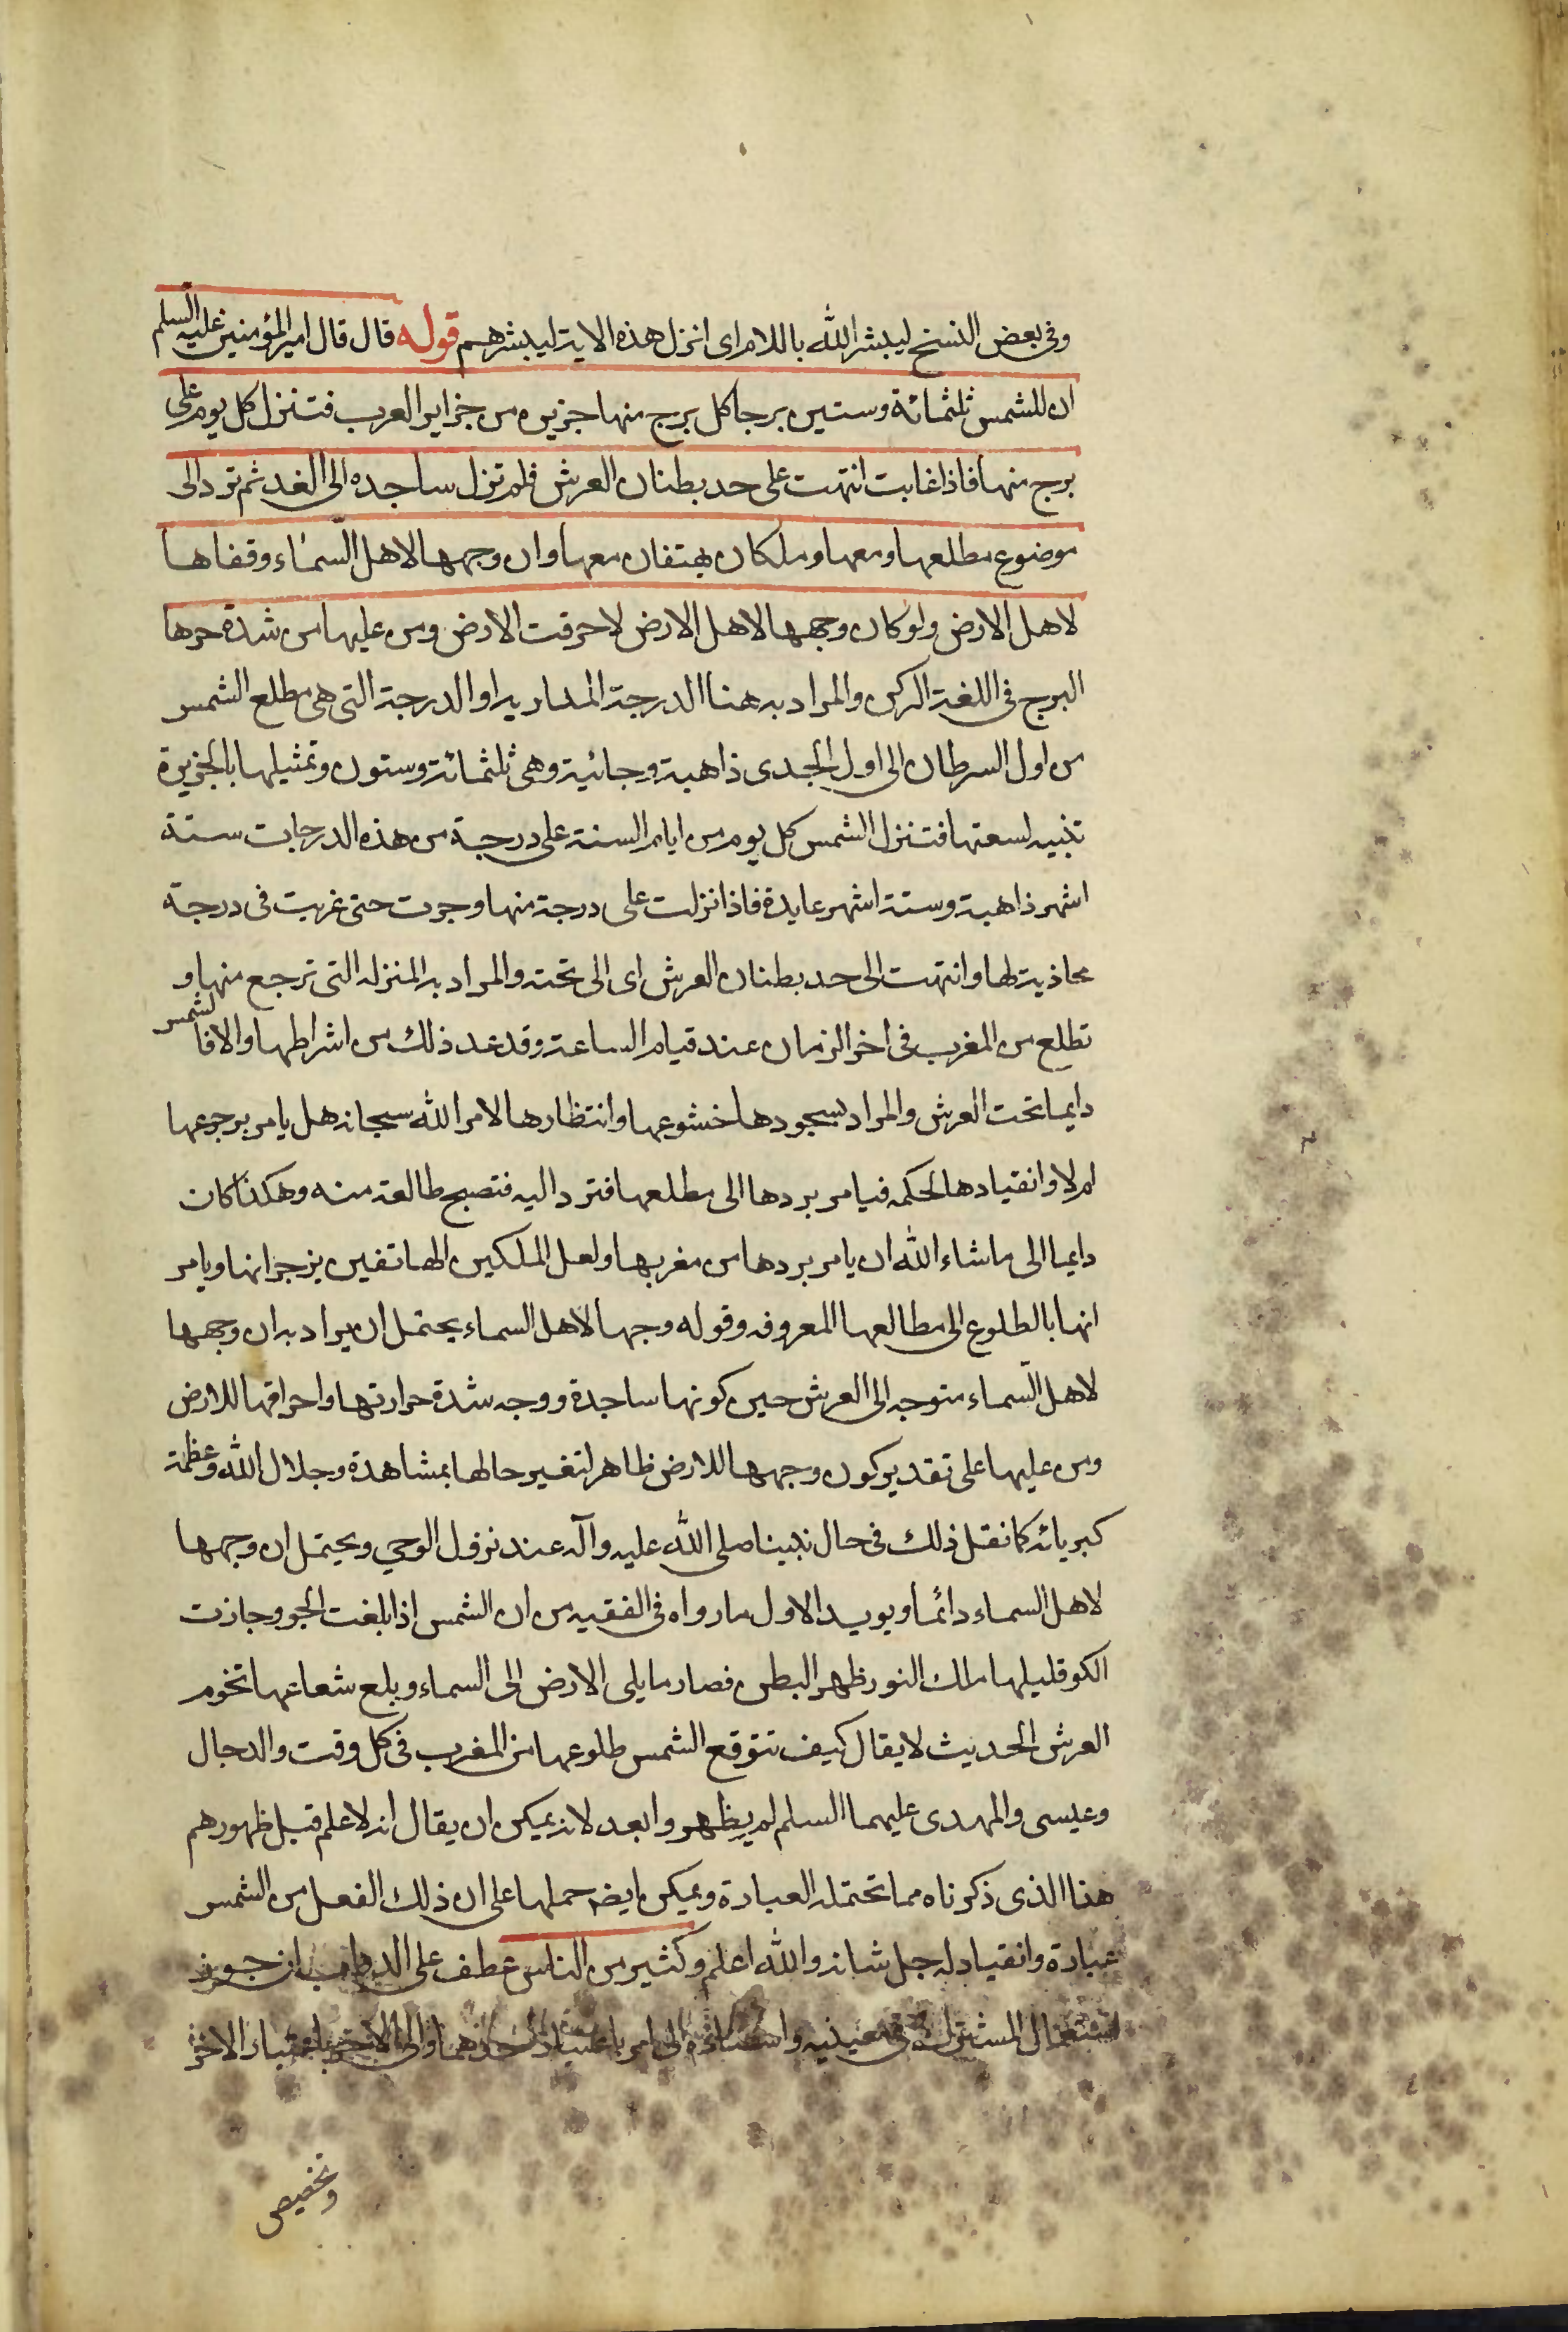 وفى بعض النسخ ليبشر الله باللام اى انزل هذه الاية ليبشرهم قوله قال قال امير المؤمنين عليه السلم
ان للشمس ثلثمائة وستين برجا كل برج منها جزيره من جزاير العرب فتنزل كل يوم على
برج منها فاذا غابت انتهت على حد بطنان العرش فلم تزل ساجده الى الغد ثم ترد الى
موضوع مطلعها ومعها وملكان يهتفان معها وان وجهها لاهل السماء وقفاها
لاهل الارض ولو كان وجهها لاهل الارض لاحرقت الارض ومن عليها من شدة حرها
البرج فى اللغة الركن والمراد به هنا الدرجة المداريه او الدرجة التى هى مطلع الشمس
من اول السرطان الى اول الجدى ذاهبة وجائية وهى ثلثمائة وستون وتمثيلها بالجزيرة
تنبيه لسعتها فتنزل الشمس كل يوم من ايام السنة على درجة من هذه الدرجات ستة
اشهر ذاهبة وستة اشهر عايدة فاذا نزلت على درجة منها وجرت حتى غربت فى درجة
محاذية لها وانتهت الى حد بطنان العرش اى الى تحته والمراد به المنزله التى ترجع منها و
تطلع من المغرب فى اخر الزمان عند قيام الساعة وقد عد ذلك من اشراطها والا فالشمس
دايما تحت العرش والمراد بسجودها خشوعها وانتظارها لامر الله سبحانه هل يامر برجوعها
ام لا وانقيادها لحكمه فيامر بردها الى مطلعها فترد اليه فتصبح طالعة منه وهكذا كان
دايما الى ماشاء الله ان يامر بردها من مغربها ولعل الملكين الهاتفين يزجرانها ويامر
انها بالطلوع الى مطالعها المعروفه وقوله وجهها لاهل السماء يحتمل ان يراد به ان وجهها
لاهل السماء متوجه الى العرش حين كونها ساجدة ووجه شدة حرارتها واحراقها للارض
ومن عليها على تقدير كون وجهها للارض ظاهر لتغير حالها بمشاهدة وجلال الله وعظمة
كبريائه كما نقل ذلك فى حال نبينا صلى الله عليه وآله عند نزول الوحي ويحتمل ان وجهها
لاهل السماء دائما ويويد الاول ما رواه فى الفقيه من ان الشمس اذا بلغت الجو وجازت
الكو قلبها ملك النور ظهر البطن فصار ما يلى الارض الى السماء وبلع شعاعها تخوم
العرش الحديث لا يقال كيف تتوقع الشمس طلوعها من المغرب فى كل وقت والدجال
وعيسى والمهدى عليهما السلم لم يظهروا بعد لانه يمكن ان يقال انه لا علم قبل ظهورهم
هذا الذى ذكرناه مما تحتمله العبارة ويمكن ايضه حملها على ان ذلك الفعل من الشمس
عبادة وانقياد له جل شانه والله اعلم وكثير من الناس عطف على الدواب ان جوز
استعمال المشترك فى معينيه واسناده الى امر باعتبار احدهما والى الاخر باعتبار الاخر
وتخصيص